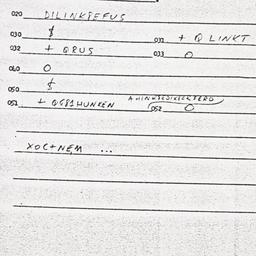 020 DILINKREFUS
030 $ 031 + Q LINKT
032 + QRUS 033 0
040 0
050 $
051 + QGB1HUNKEN 052 0
XOC+NEM ...